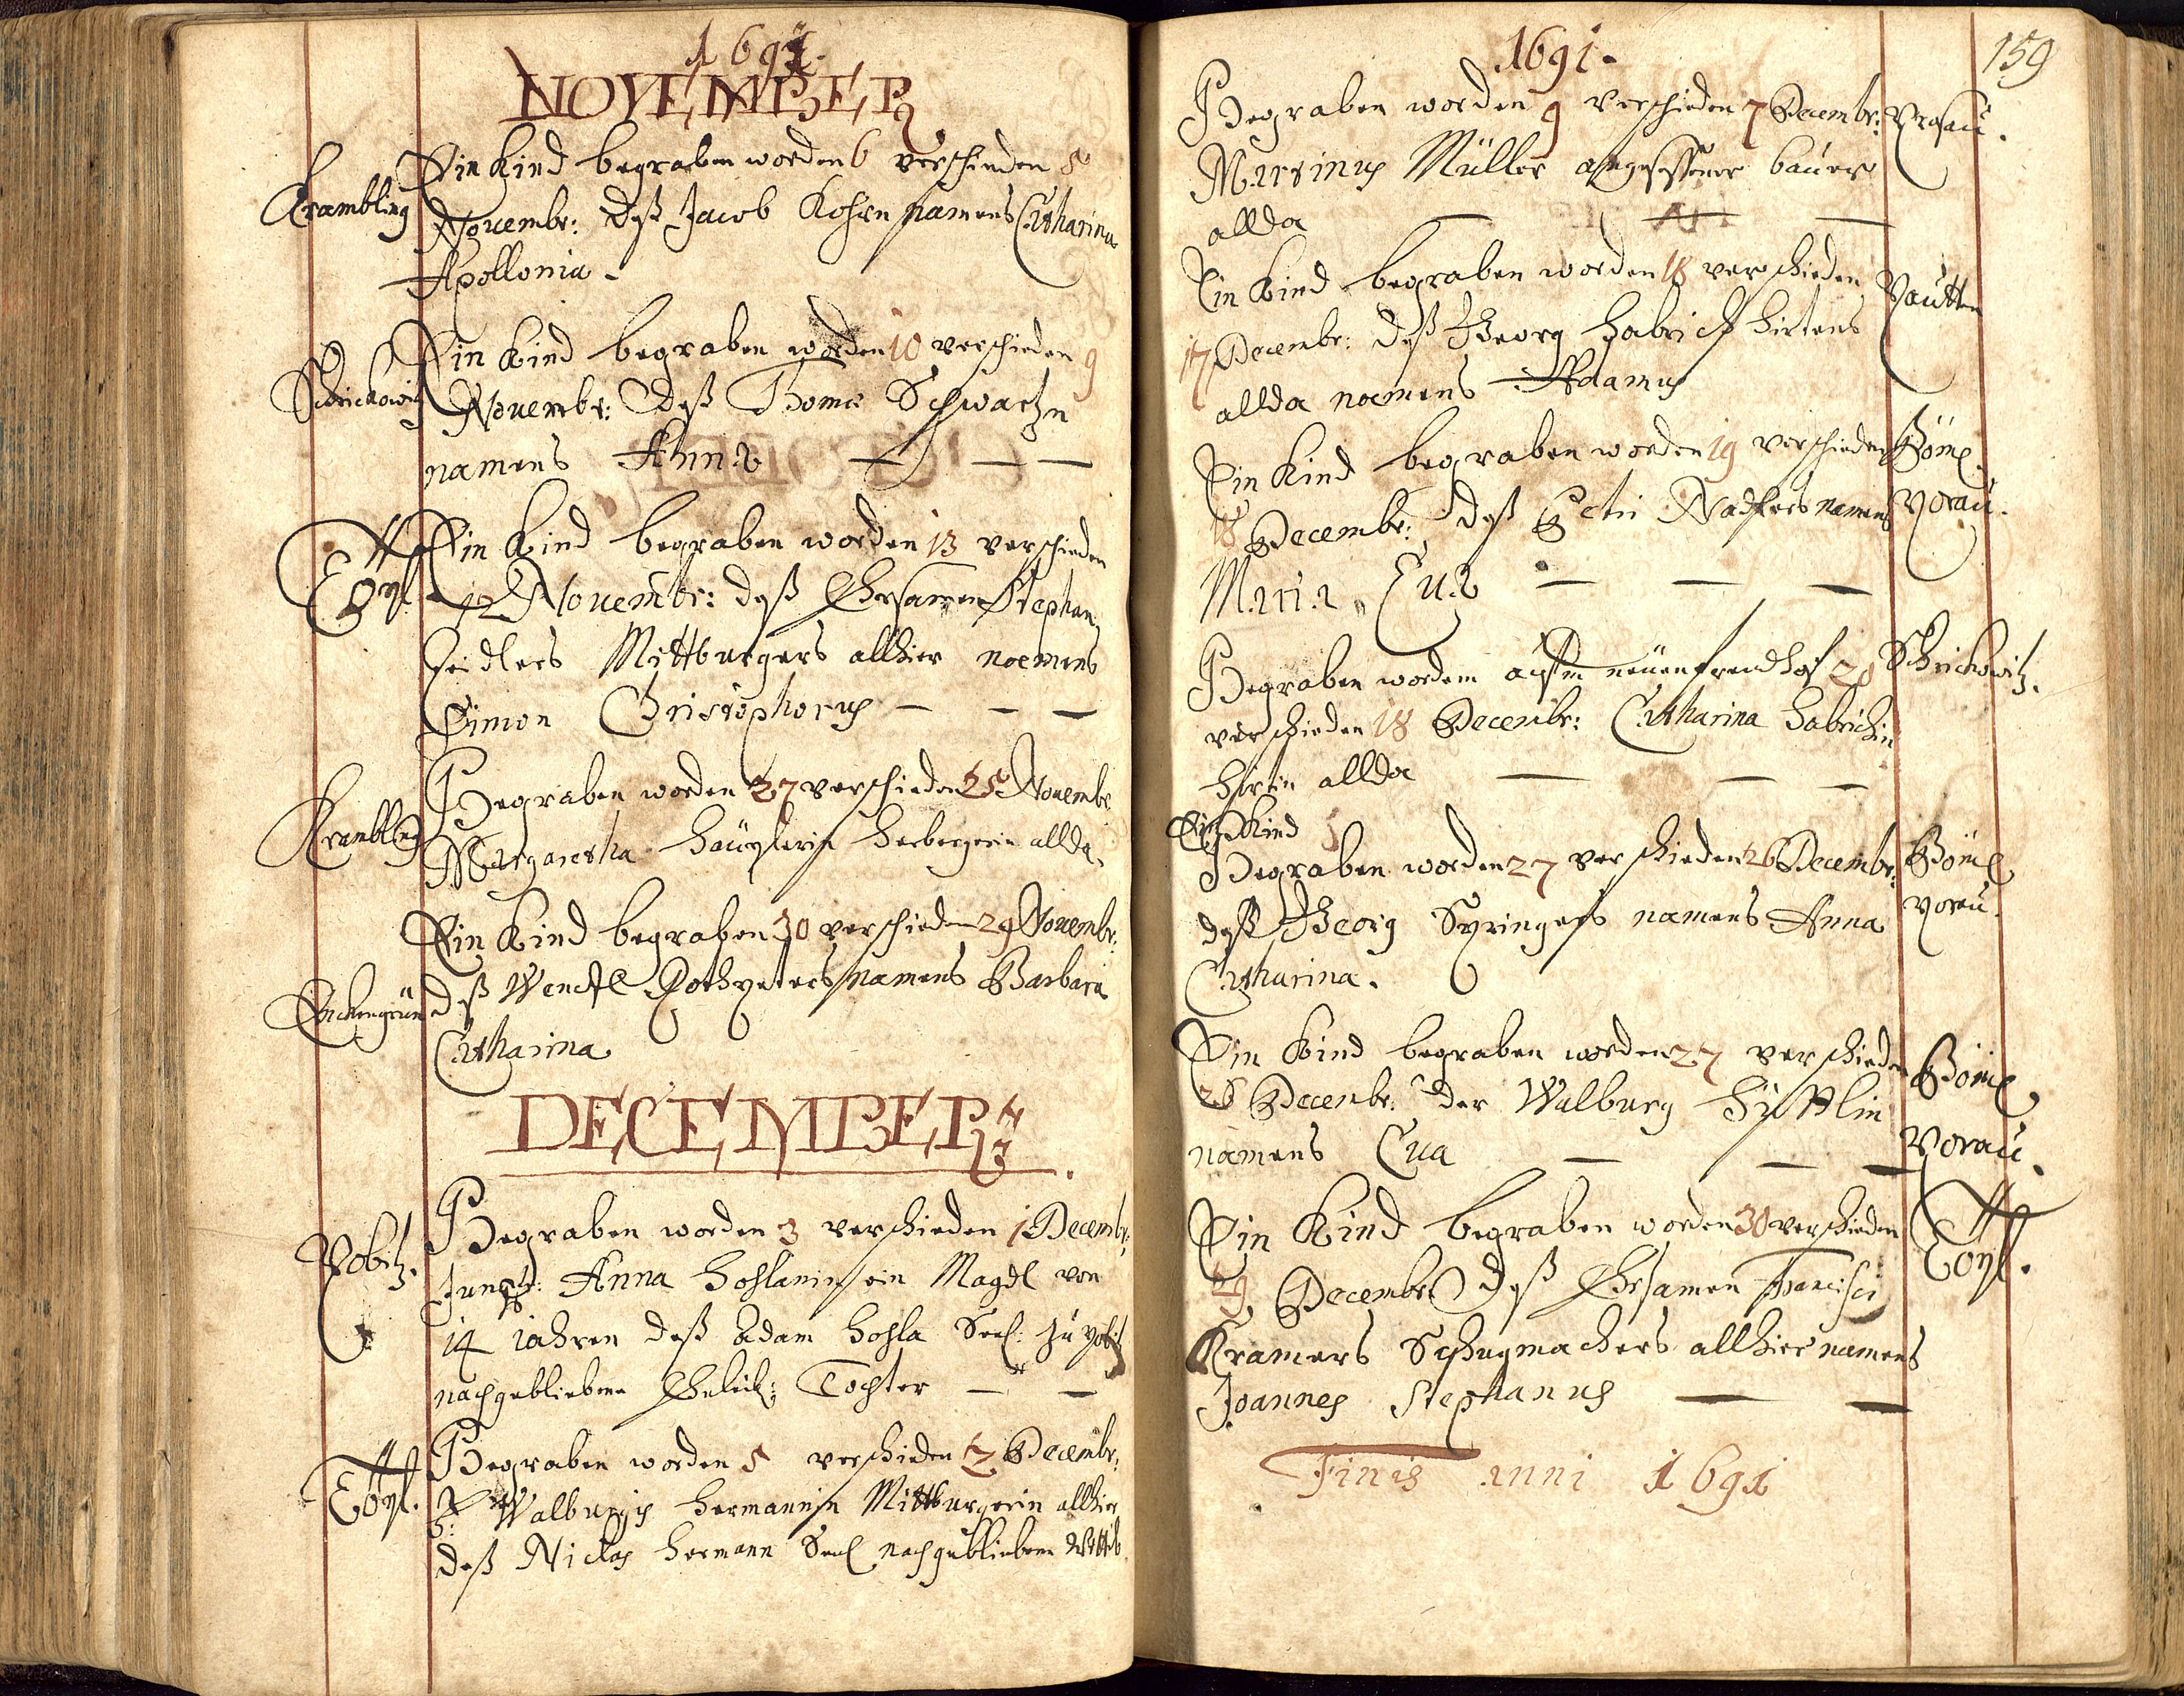 1691.
NOVEMBER
Krambling
Ein Kind begraben worden 6 verschieden 5
Novembr: deß Jacob Kohrn namens Catharina
Apollonia -
Schrickowitz
Ein Kind begraben worden 10 verschieden 9
Novembr: deß Thomæ Schwartzn
namens Anna
Ein Kind begraben worden 13 verschieden
12 Novembr: deß Ehrsamen Stephan
Zeidlers Mittburgers allhier namens
Simon Christophorus
Krambling
Begraben worden 27 verschieden 25 Novembr
Margaretha herbergerin allda.
Ein Kind begraben 30 verschieden 29 Novembr:
deß Wenctl namens Barbara
Catharina
DECEMBER
Begraben worden 3 verschieden 1 Decembr:
Anna Hohlanin ein Magdl von
14 iahren deß Adam Hohla Seel: zu
nachgebliebene Eheleib: Tochter
Begraben worden 5 verschieden 2 Decembr:
Walburgis Hermannin Mittburgerin allhier
deß Niclas Hermann Seel nachgebliebene Wittib
159
1691.
Begraben worden 9 verschieden 7 Decembr:
Martinus Müller angesessener bauer
allda
Ein Kind begraben worden 18 verschieden
17 Decembr: deß Georg Habrich hirtens
allda namens Adamus
Ein Kind begraben worden 19 verschieden
Böm
18 Decembr: deß namens
Vorau.
Maria Eva
Begraben worden aufm neüen freudhof 20
Schrickowitz.
verschieden 18 Decembr: Catharina Habrichin
hirtin allda
Ein Kind
Begraben worden 27 verschieden 26 Decembr:
Böm
deß Georg Syringers namens Anna
Vorau.
Catharina.
Ein Kind begraben worden 27 verschieden
Böm
26 Decembr: der Walburg
namens Eva
Vorau.
Ein Kind begraben worden 30 verschieden
29 Decembr deß Ehrsamen Francisci
Kramers Schugmachers allhier namens
Joannes Stephanus
Finis anni 1691